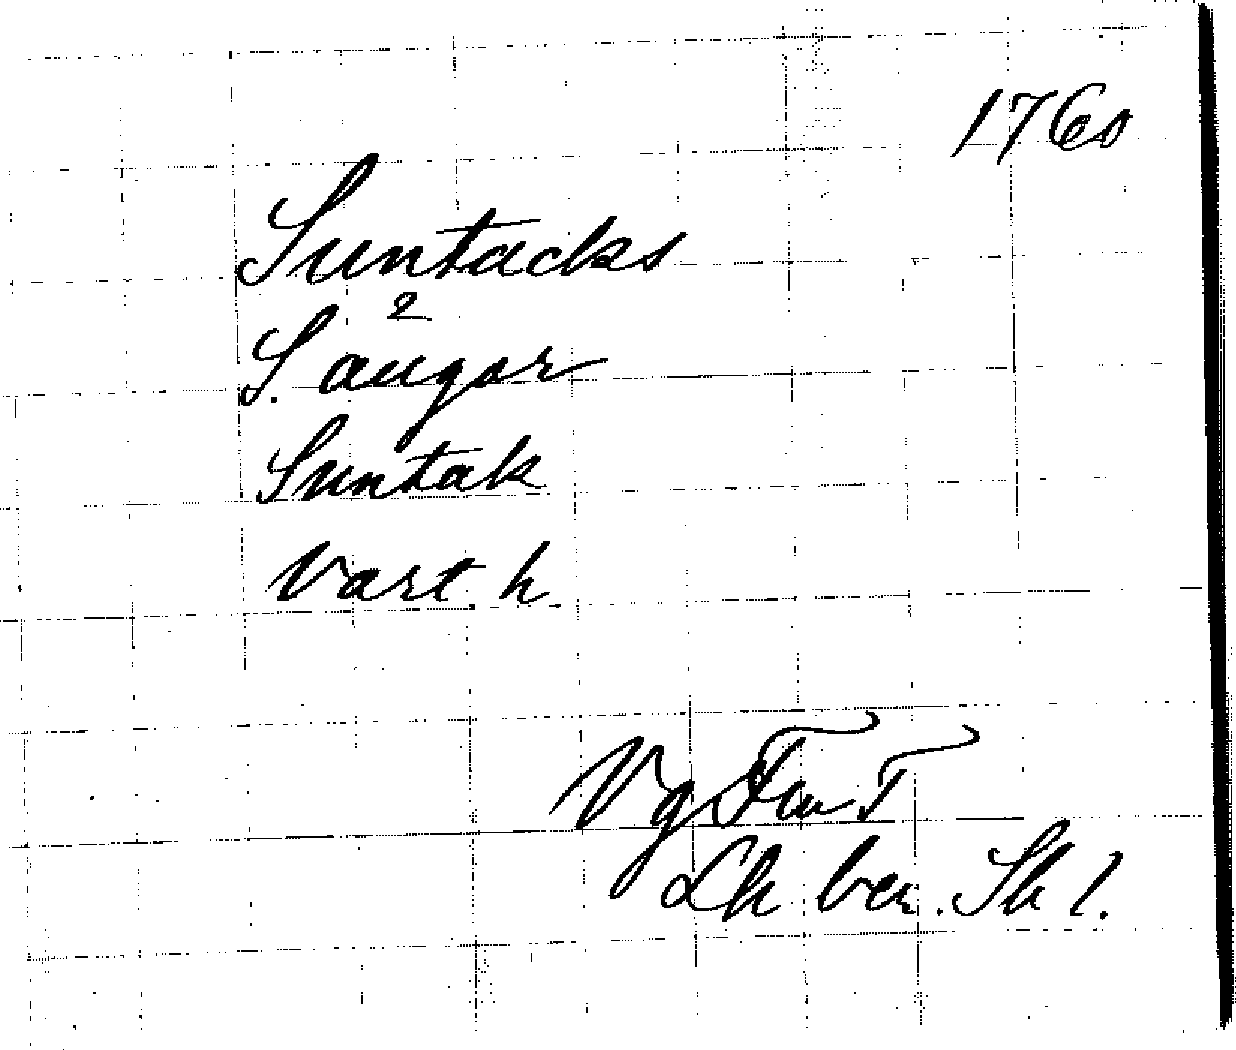 1760
Suntacks
2
S. augor
Suntak
Vart h.
Vg
Lh ber. Sk l.